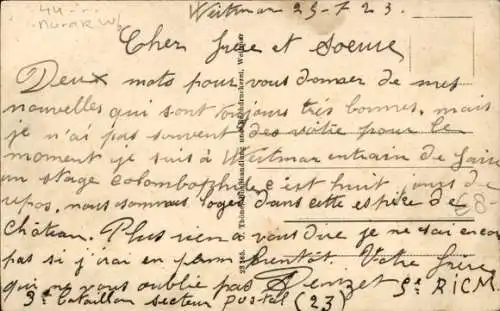 44
Weitmar 25-7 23.
Cher frere et Soeur
Deux mots pour vous donner de mes
nouvelles qui sont toujours très bonnes, mais
je n'ai pas souvent des votre pour le
moment je suis à Weitmar entrain de faire
un stage colombophile c'est huit jours de
repos, nous sommes loger dans cette espèce de
Château. Plus rien a vous dire je ne sai encor
pas si j'irai en perm bientôt. Votre frère
qui ne vous oublie pas Denizet 5e RICM.
3e bataillon secteur postal (23)
8-